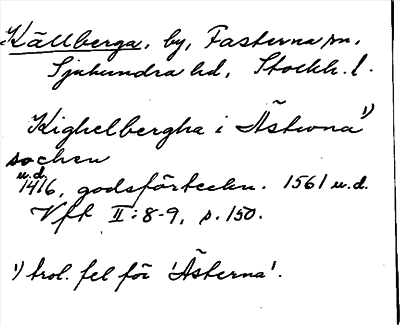 Källberga, by, Fasterna sn,
Sjuhundra hd, Stockh. l.
Kighelbergha i Ästwna 1)
sochen
u.d.
1416, godsförteckn. 1561 u.d.
Vft II:8-9, s. 150.
1) trol. fel för 'Āsterna'.